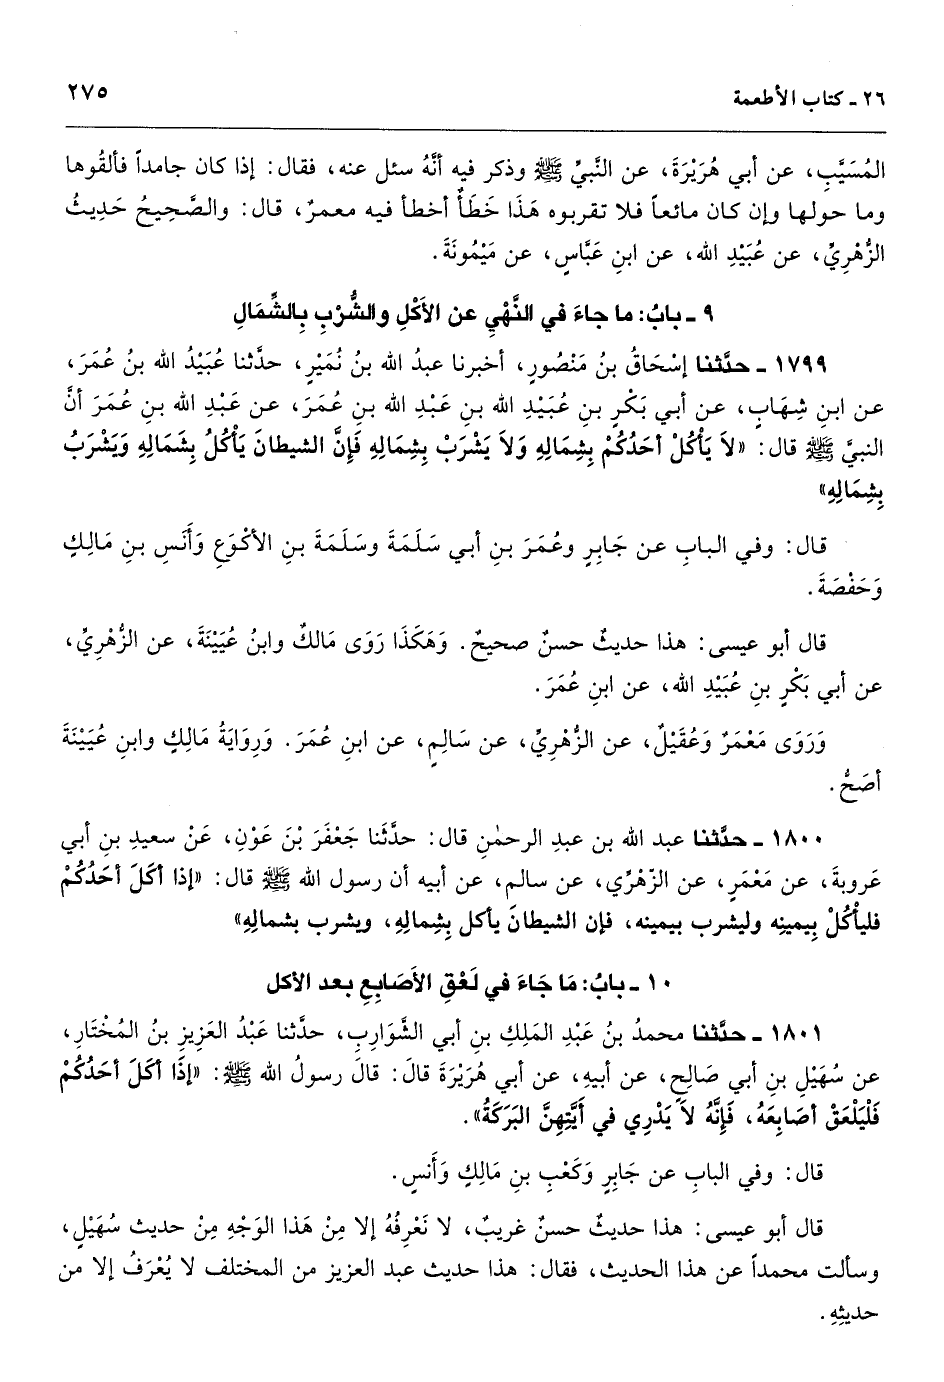 ٢٦ ـ كتاب الأطعمة ٢٧٥
المُسَيَّبِ، عن أبي هُرَيْرَةَ، عن النَّبيِّ ﷺ وذكر فيه أنَّهُ سئل عنه، فقال: إذا كان جامداً فألقُوها
وما حولها وإن كان مائعاً فلا تقربوه هَذَا خَطَأٌ أخطأ فيه معمرٌ، قال: والصَّحِيحُ حَدِيثُ
الزُّهْرِيِّ، عن عُبَيْدِ الله، عن ابنِ عَبَّاسٍ، عن مَيْمُونَةَ.
٩ ـ بابُ: ما جاءَ في النَّهْيِ عن الأَكْلِ والشُّرْبِ بِالشِّمَالِ
١٧٩٩ ـ حدَّثنا إسْحَاقُ بنُ مَنْصُورٍ، أخبرنا عبدُ الله بنُ نُمَيْرٍ، حدَّثنا عُبَيْدُ الله بنُ عُمَرَ،
عن ابنِ شِهَابٍ، عن أبي بَكْرِ بنِ عُبَيْدِ الله بنِ عَبْدِ الله بنِ عُمَرَ، عن عَبْدِ الله بنِ عُمَرَ أنَّ
النبيَّ ﷺ قال: «لاَ يَأْكُلْ أحَدُكُمْ بِشِمَالِهِ وَلاَ يَشْرَبْ بِشِمَالِهِ فَإِنَّ الشيطانَ يَأْكُلُ بِشَمَالِهِ وَيَشْرَبُ
بِشِمَالِهِ»
قال: وفي البابِ عن جَابِرٍ وعُمَرَ بنِ أبي سَلَمَةَ وسَلَمَةَ بنِ الأكْوَعِ وَأَنَسِ بنِ مَالِكٍ
وَحَفْصَةَ.
قال أبو عيسى: هذا حديثٌ حسنٌ صحيحٌ. وَهَكَذَا رَوَى مَالكٌ وابنُ عُيَيْنَةَ، عن الزُّهْرِيِّ،
عن أبي بَكْرِ بنِ عُبَيْدِ الله، عن ابنِ عُمَرَ.
وَرَوَى مَعْمَرٌ وَعُقَيْلٌ، عن الزُّهْرِيِّ، عن سَالِمٍ، عن ابنِ عُمَرَ. وَرِوَايَةُ مَالِكٍ وابنِ عُيَيْنَةَ
أصَحُّ.
١٨٠٠ ـ حدَّثنا عبد الله بن عبد الرحمٰنِ قال: حدَّثَنا جَعْفَرَ بْنَ عَوْنٍ، عَنْ سعيدِ بنِ أبي
عَروبةَ، عن مَعْمَرٍ، عن الزّهْرِّي، عن سالم، عن أبيه أن رسول الله ﷺ قال: «إذا أكَلَ أحَدُكُمْ
فليأْكُلْ بِيمينِه وليشرب بيمينه، فإن الشيطانَ يأكل بِشِمالِهِ، ويشرب بشمالِهِ»
١٠ ـ بابُ: مَا جَاءَ في لَعْقِ الأَصَابِعِ بعد الأكل
١٨٠١ ـ حدَّثنا محمدُ بنُ عَبْدِ المَلِكِ بنِ أبي الشَّوَارِبِ، حدَّثنا عَبْدُ العَزِيزِ بنُ المُخْتَارِ،
عن سُهَيْلِ بنِ أبي صَالِحٍ، عن أبيهِ، عن أبي هُرَيْرَةَ قالَ: قالَ رسولُ الله ﷺ: «إذَا أكَلَ أحَدُكُمْ
فَلْيَلْعَقْ أصَابِعَهُ، فَإنَّهُ لاَ يَدْرِي في أيَّتِهِنَّ البَرَكَةُ».
قال: وفي البابِ عن جَابِرٍ وَكَعْبِ بنِ مَالِكٍ وَأَنسٍ.
قال أبو عيسى: هذا حديثٌ حسنٌ غريبٌ، لا نَعْرِفُهُ إلا مِنْ هَذا الوَجْهِ مِنْ حديث سُهَيْلٍ،
وسألت محمداً عن هذا الحديث، فقال: هذا حديث عبد العزيز من المختلف لا يُعْرَفُ إلا من
حديثِهِ.